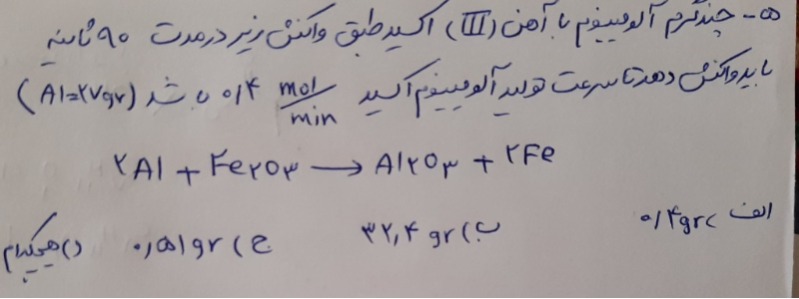 ۵- چند گرم آلومینیوم با آهن (III) اکسید طبق واکنش زیر در مدت ۹۰ ثانیه
باید واکنش دهد تا سرعت تولید آلومینیوم اکسید ۰/۴ mol/min باشد (Al=۲۷gr)
۲Al + Fe۲O۳ → Al۲O۳ + ۲Fe
الف) ۰/۴gr ب) ۳۲,۴ gr ج) ۰,۵۱gr د) هیچکدام